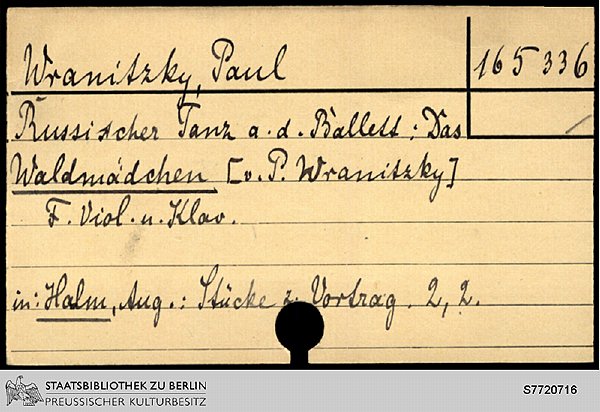 Wranitzky, Paul
165 336
Russischer Tanz a. d. Ballett: Das
Waldmädchen [v. P. Wranitzky]
F. Viol. u. Klav.
in: Halm, Aug.: Stücke z. Vortrag. 2, 2.
STAATSBIBLIOTHEK ZU BERLIN
PREUSSISCHER KULTURBESITZ
S7720716